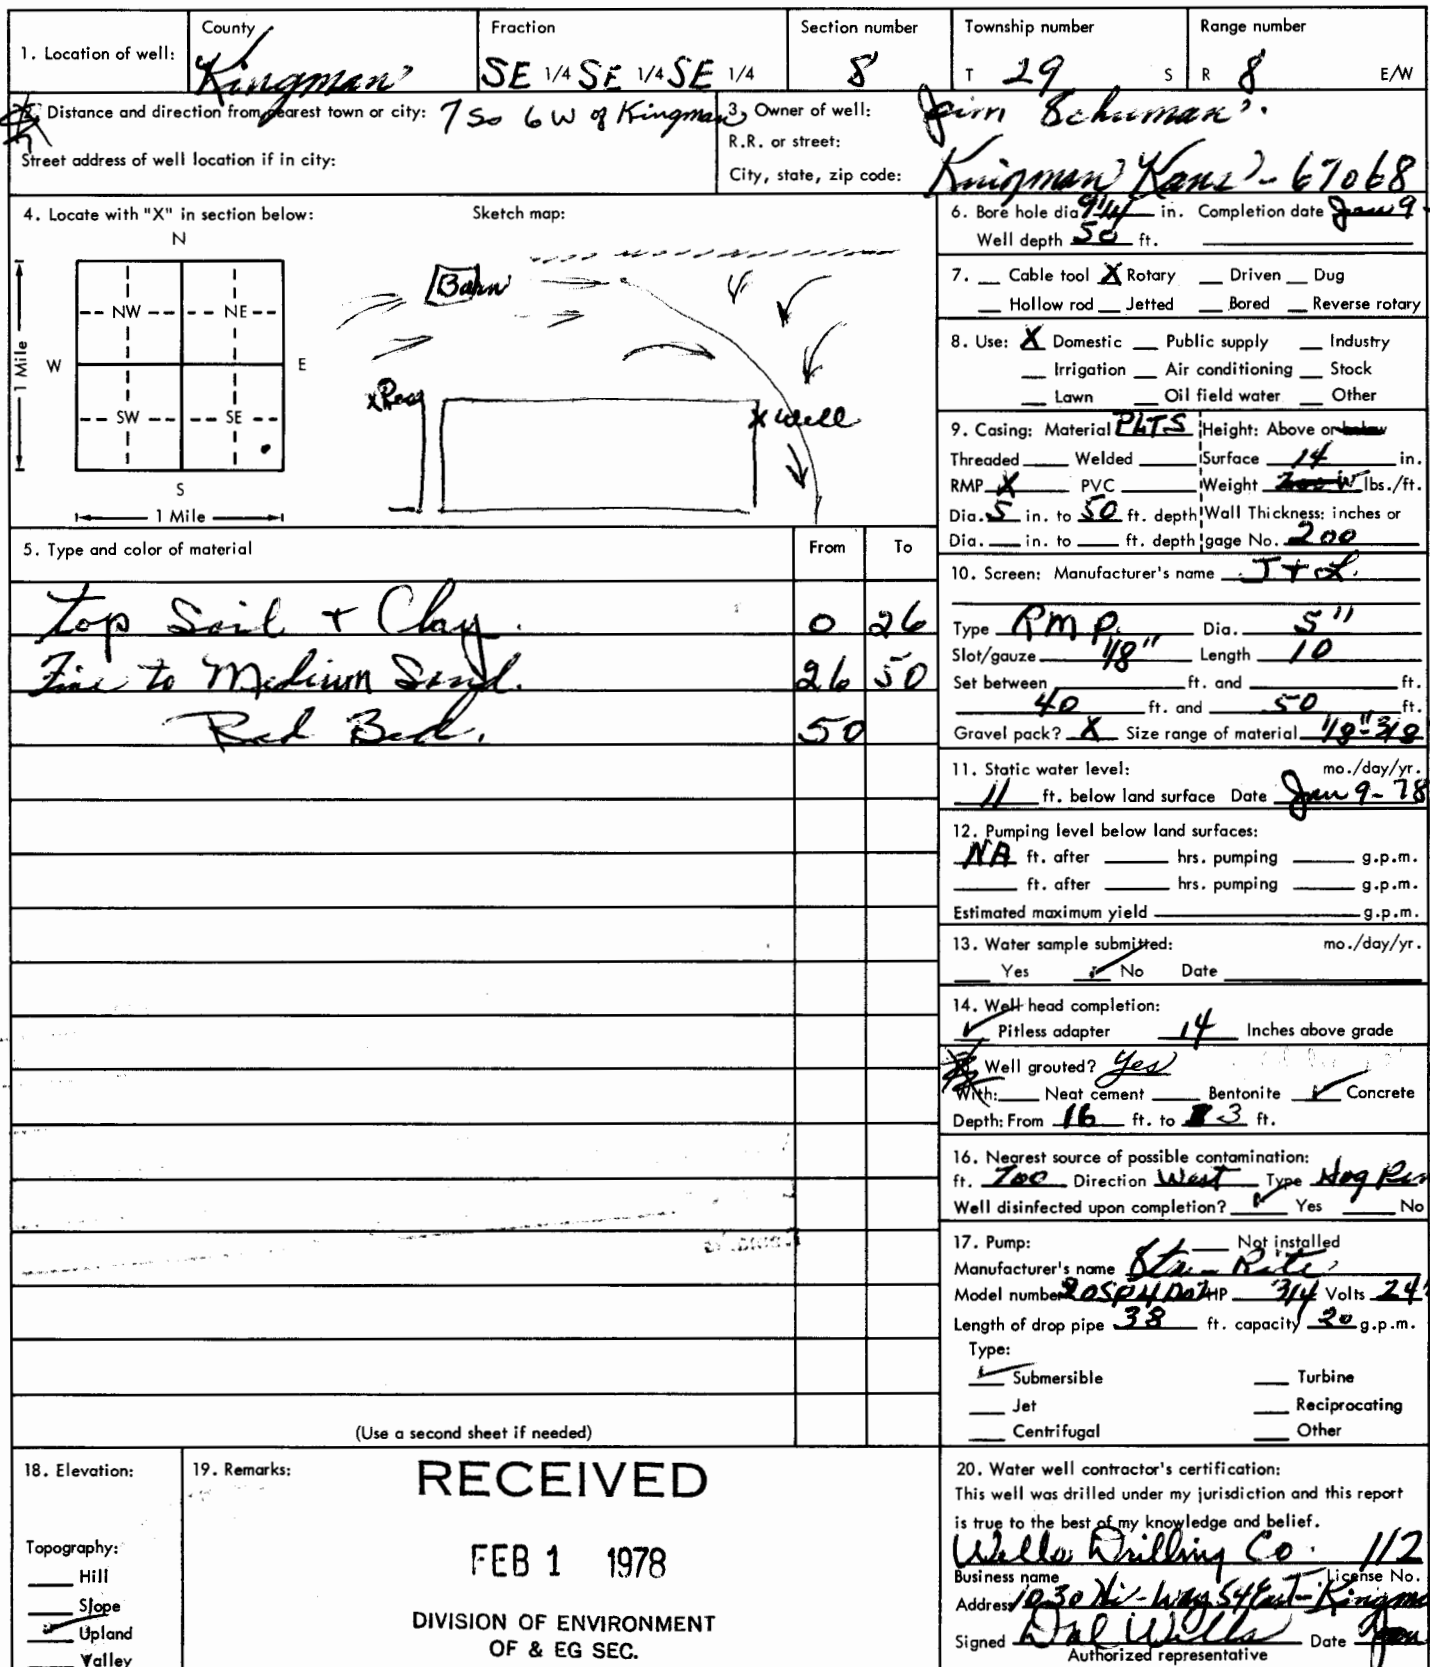 1. Location of well: County Kingman Fraction SE 1/4 SE 1/4 SE 1/4 Section number 8 Township number T 29 S Range number R 8 E/W
2. Distance and direction from nearest town or city: 7 So 6 W of Kingman
Street address of well location if in city:
3. Owner of well: Jim Schuman
R.R. or street:
City, state, zip code: Kingman Kans - 67068
4. Locate with "X" in section below: Sketch map:
N
NW NE
W E
SW SE
S
1 Mile
1 Mile
Barn
x Res
x Well
5. Type and color of material From To
Top Soil + Clay. 0 26
Fine to Medium Sand. 26 50
Red Bed. 50
(Use a second sheet if needed)
6. Bore hole dia 9 1/4 in. Completion date Jan 9
Well depth 50 ft.
7. Cable tool X Rotary Driven Dug
Hollow rod Jetted Bored Reverse rotary
8. Use: X Domestic Public supply Industry
Irrigation Air conditioning Stock
Lawn Oil field water Other
9. Casing: Material PLTS Height: Above or below
Threaded Welded Surface 14 in.
RMP X PVC Weight lbs./ft.
Dia. 5 in. to 50 ft. depth Wall Thickness: inches or
Dia. in. to ft. depth gage No. 200
10. Screen: Manufacturer's name J + L
Type RMP Dia. 5"
Slot/gauze 1/8" Length 10
Set between ft. and ft.
40 ft. and 50 ft.
Gravel pack? X Size range of material 1/8"-3/8
11. Static water level: mo./day/yr.
11 ft. below land surface Date Jan 9-78
12. Pumping level below land surfaces:
NA ft. after hrs. pumping g.p.m.
ft. after hrs. pumping g.p.m.
Estimated maximum yield g.p.m.
13. Water sample submitted: mo./day/yr.
Yes ✓ No Date
14. Well head completion:
✓ Pitless adapter 14 Inches above grade
Well grouted? Yes
With: Neat cement Bentonite ✓ Concrete
Depth: From 16 ft. to 3 ft.
16. Nearest source of possible contamination:
ft. 700 Direction West Type Hog Pen
Well disinfected upon completion? ✓ Yes No
17. Pump: Not installed
Manufacturer's name Sta-Rite
Model number HP 3/4 Volts 24
Length of drop pipe 38 ft. capacity 20 g.p.m.
Type:
✓ Submersible Turbine
Jet Reciprocating
Centrifugal Other
18. Elevation:
Topography:
Hill
Slope
✓ Upland
Valley
19. Remarks:
RECEIVED
FEB 1 1978
DIVISION OF ENVIRONMENT
OF & EG SEC.
20. Water well contractor's certification:
This well was drilled under my jurisdiction and this report
is true to the best of my knowledge and belief.
Wells Drilling Co. 112
Business name License No.
Address 1030 Hi-Way 54 East-Kingma
Signed Dal Wells Date Jan
Authorized representative